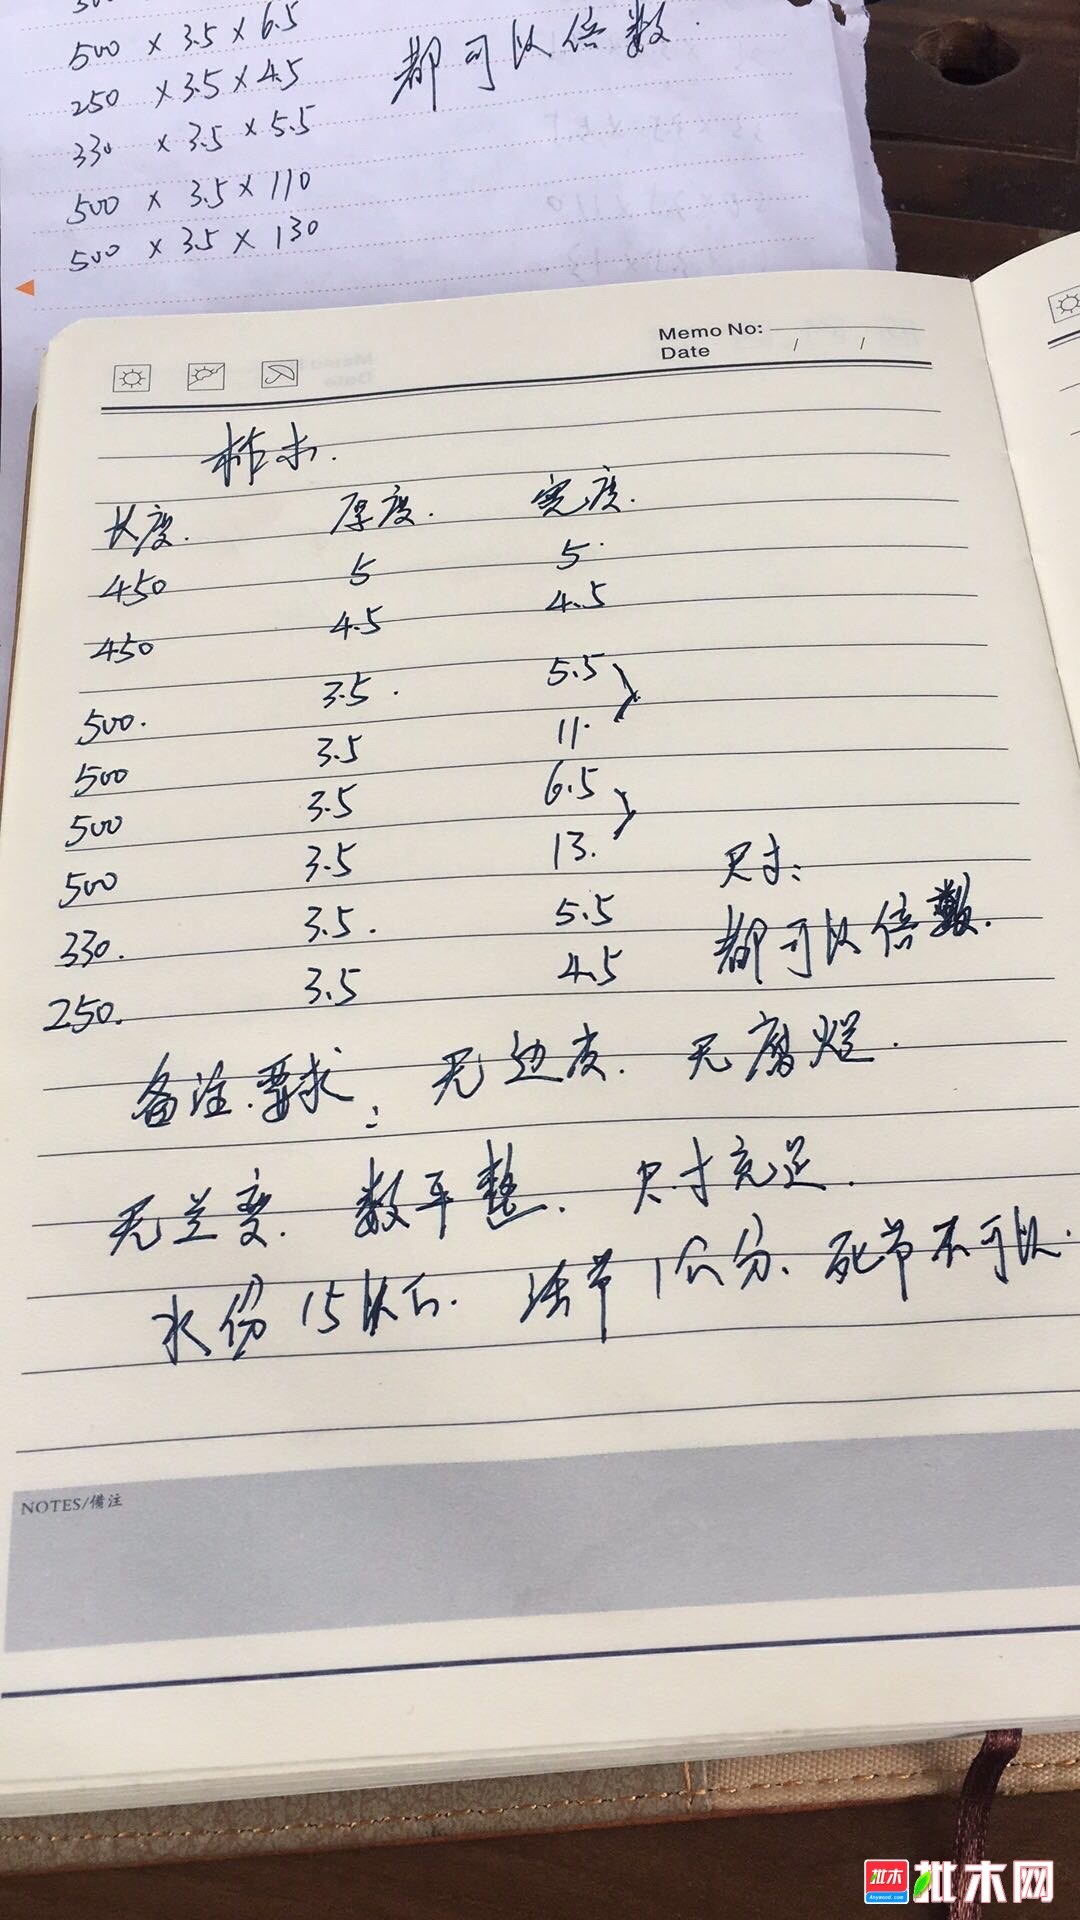 500 × 3.5 × 6.5
都可以倍数.
250 × 3.5 × 4.5
330 × 3.5 × 5.5
500 × 3.5 × 110
500 × 3.5 × 130
Memo No:
Date / /
柞木.
长度. 厚度. 宽度.
450 5 5
450 4.5 4.5
500. 3.5. 5.5
500 3.5 11.
500 3.5 6.5
500 3.5 13.
尺寸:
330. 3.5. 5.5
都可以倍数.
250. 3.5 4.5
备注.要求: 无边皮. 无腐烂.
无兰变. 数平整. 尺寸充足.
水份15以下. 活节1公分、死节不可以.
NOTES/備注
批木
Anywood.com
批木网